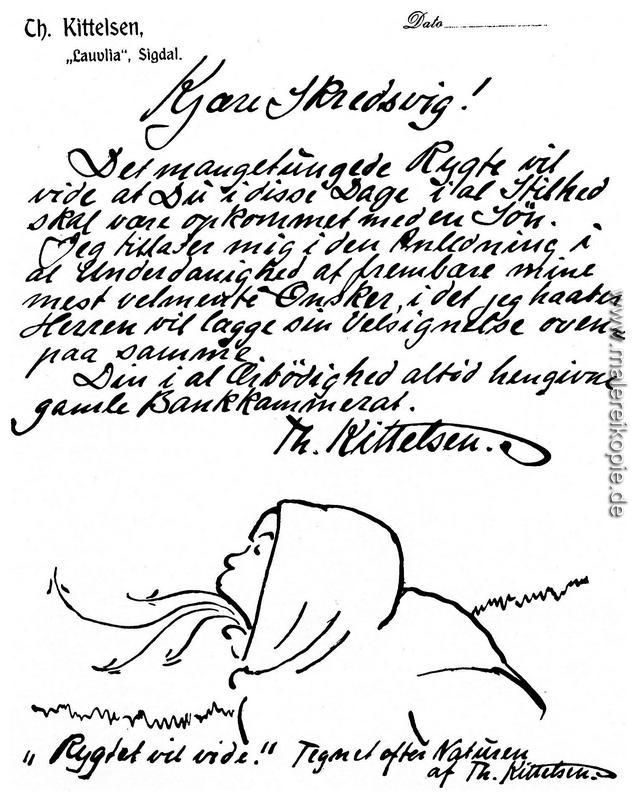 Th. Kittelsen,
„Lauvlia“, Sigdal.
Dato
Kjære Skredsvig!
Det mangetungede Rygte vil
vide at Du i disse Dage i al Stilhed
skal være opkommet med en Sön.
Jeg tillader mig i den Anledning i
al Underdanighed at frembære mine
mest velmente Önsker, i det jeg haaber
Herren vil lægge sin Velsignelse oven
paa samme
Din i al Ærbödighed altid hengivne
gamle Bankkammerat.
Th. Kittelsen.
„Rygtet vil vide." Tegnet efter Naturen
af Th. Kittelsen.
www.malereikopie.de